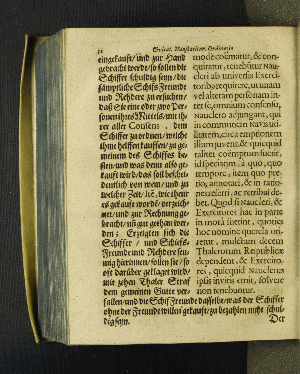 Civitat. Hanseaticar. Ordinatio
eingekaufft / und zur Hand
gebracht werde / so sollen die
Schiffer schuldig seyn / die
sämptliche Schiffs Freunde
und Rehdere zu ersuchen /
daß Sie eine oder zwo Per-
sonen ihres Mittels / mit ih-
rer aller Consens, dem
Schiffer zu ordnen / welche
ihme helffen kauffen / zu ge-
meinem des Schiffes be-
sten / und was denn also ge-
kaufft wird / das soll beschei-
dentlich von wem / und zu
welcher Zeit / wie thewr
es gekaufft worden / verzeich-
net / und zur Rechnung ge-
bracht / gethan wer-
den; Erzeigten sich die
Schiffer / und Schiffs-
Freunde und Rehdere seu-
mig hierinnen / sollen sie / so
offt darüber geklaget wird /
mit zehen Thaler Straf
dem gemeinen Gutte ver-
fallen / und die Schiff Freunde dasselbe / was der Schiffer
ohne der Freunde willen gekaufft / zu bezahlen nicht schul-
dig seyn.
modè coëmatur, & con-
quiratur, tenebuntur Nau-
cleri ab universis Exerci-
toribus requirere, ut unam
vel alteram personam in-
ter se, omnium consensu,
Nauclero adjungant, qui
in communem navis uti-
litatem, circa emptionem
illum juvent, & quicquid
taliter coëmptum fuerit,
id speciatim, à quo, quo
tempore, item quo pre-
tio, annotari, & in ratio-
nes referri, ac retribui de-
bet. Quod si Naucleri, &
Exercitores hac in parte
in mora fuerint, quoties
hoc nomine querela
mulctam decem
Thalerorum Reipublicæ
dependent, & Exercito-
res, quicquid Nauclerus
ipsis invitis emit, solvere
non tenebuntur.
Der